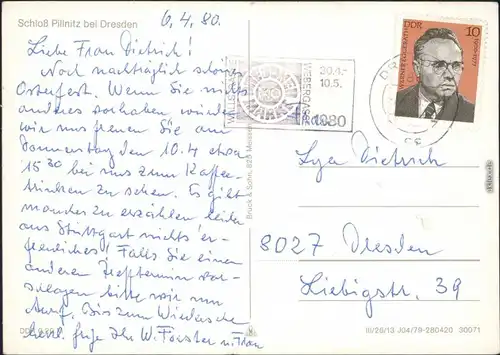 Schloß Pillnitz bei Dresden
6.4.80.
Liebe Frau Dietrich!
Noch nachträglich schönes
Osterfest. Wenn Sie nichts
anderes vorhaben würden
wir uns freuen Sie am
Donnerstag den 10.4 etwa
15 30 bei uns zum Kaffee
trinken zu sehen. Es gibt
manches zu erzählen leider
aus Stuttgart nichts er-
freuliches! Falls Sie einen
anderen Treffpermin vor-
schlagen bitte wir um
Anruf. Bis zum Wiedersehen
herzl. Ihr W. Förster u. Frau
20.4.-
10.5.
1980
DDR
10
1906-1977
Lya Dietrich
8027 Dresden
Liebigstr. 39
III/26/13 J04/79-280420 30071